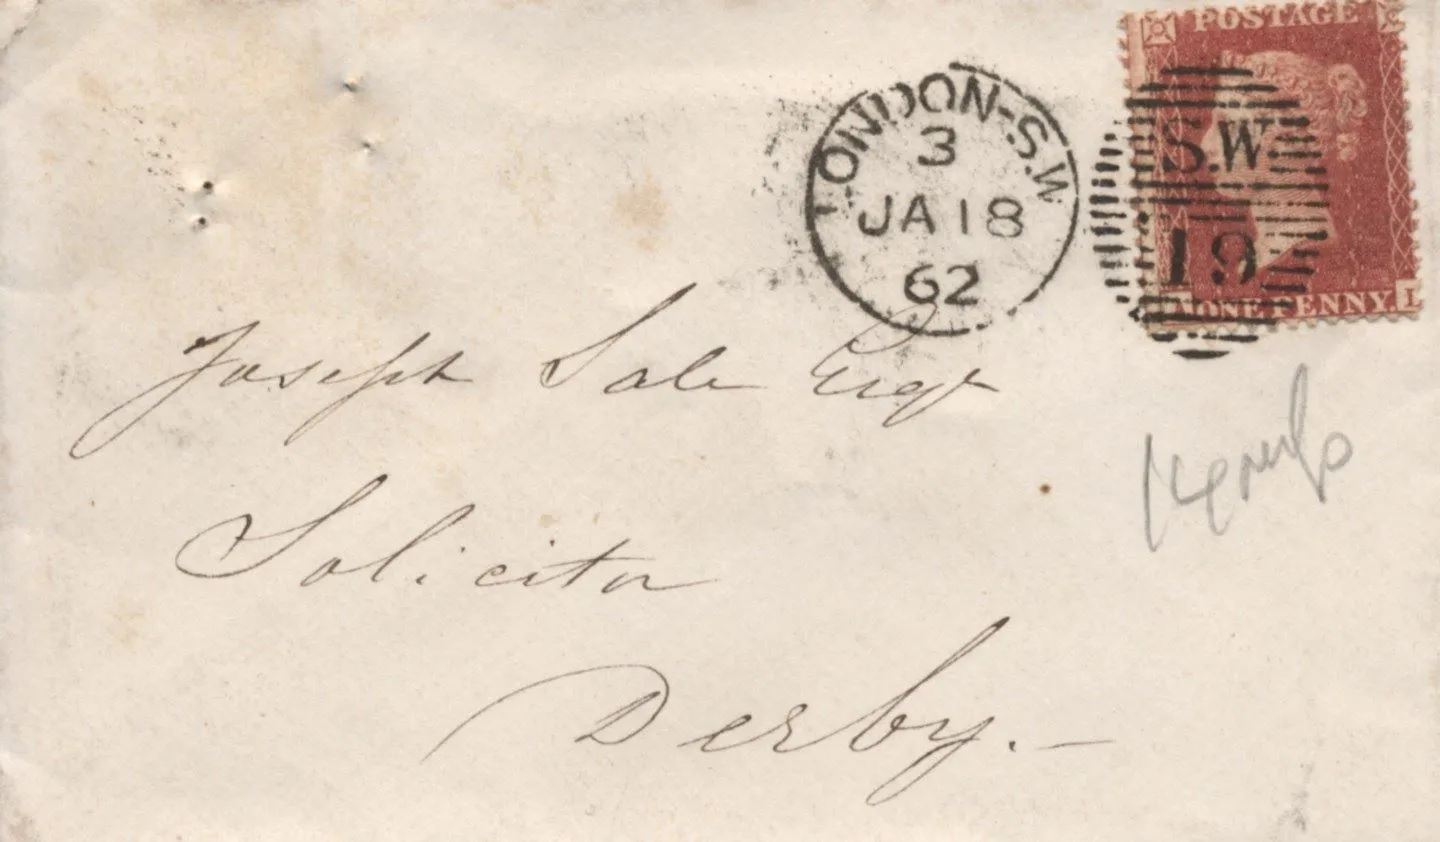 POSTAGE
LONDON-S.W
3
JA 18
62
S.W.
19
ONE PENNY.
L
Joseph Sale Esqr
Solicitor
Derby. —